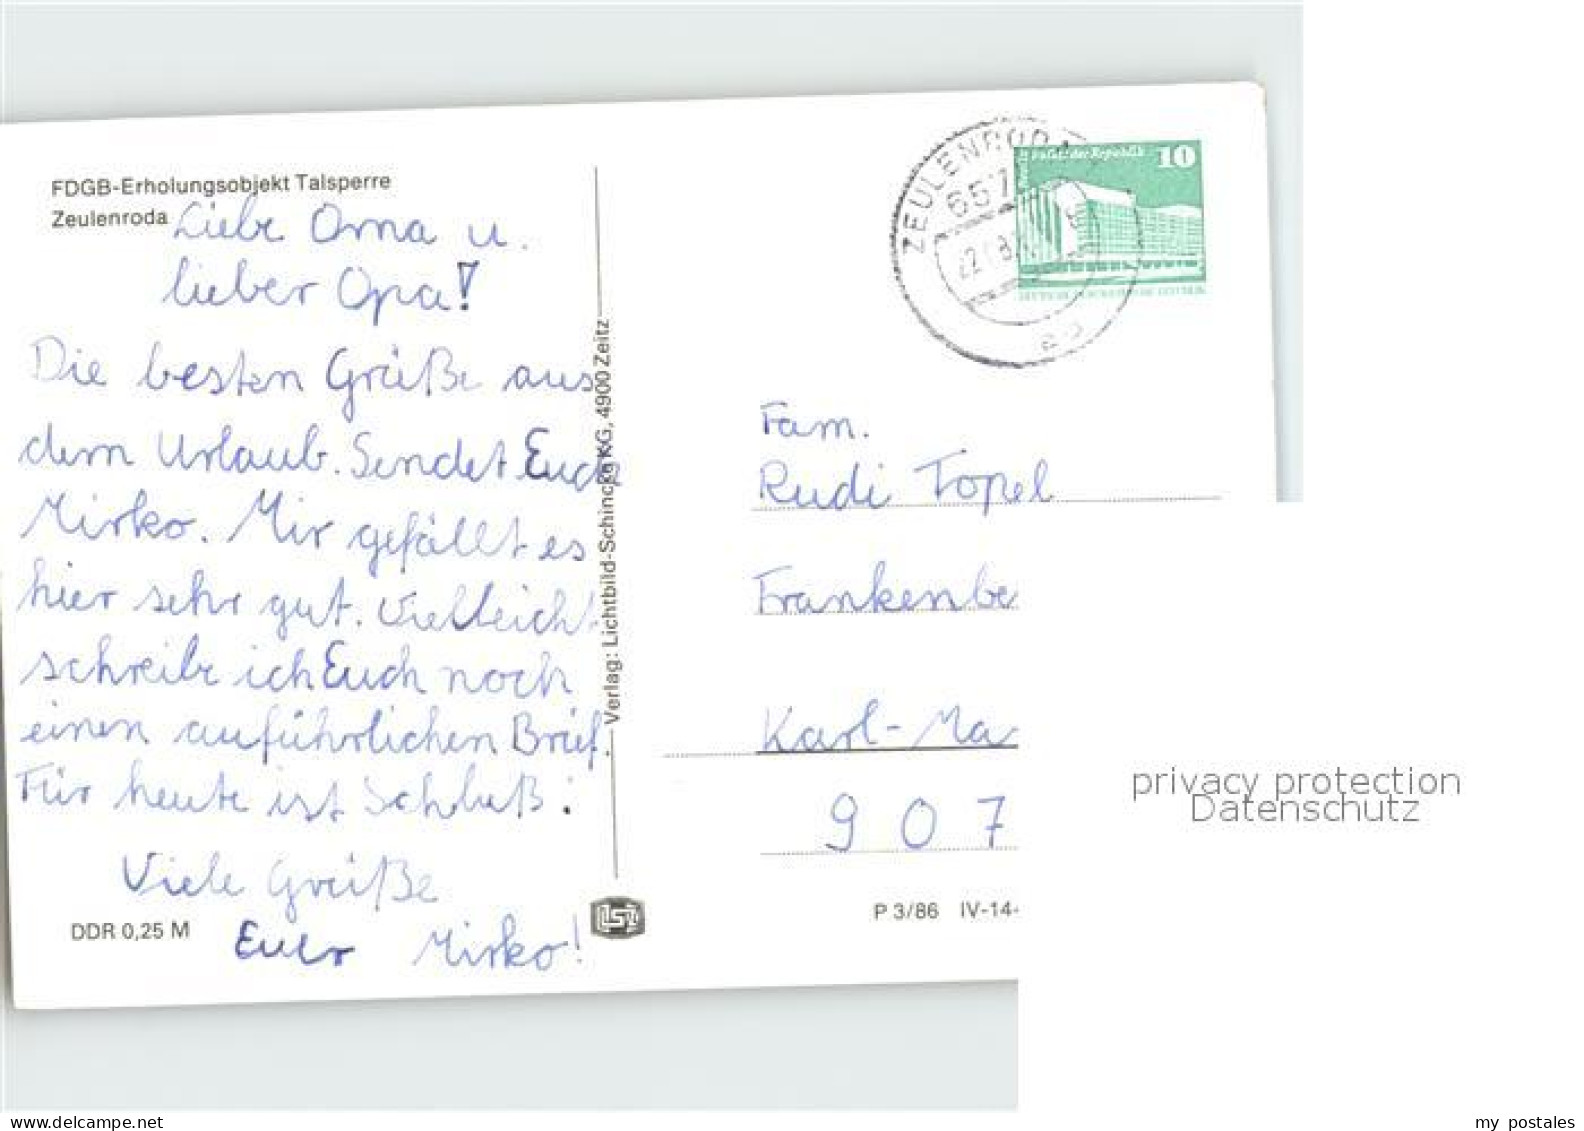 FDGB-Erholungsobjekt Talsperre
Zeulenroda
Liebe Oma u.
lieber Opa!
Die besten Grüße aus
dem Urlaub. Sendet Euch
Mirko. Mir gefällt es
hier sehr gut. Vielleicht
schreibe ich Euch noch
einen auführlichen Brief.
Für heute ist Schluß:
Viele Grüße
Euer Mirko!
DDR 0,25 M
Verlag: Lichtbild-Schincke KG, 4900 Zeitz
ZEULENRODA
657
Palast der Republik 10
Fam.
Rudi Topel
Frankenbe
Karl-Ma
9 0 7
P 3/86 IV-14-
privacy protection
Datenschutz
delcampe.net
my postales